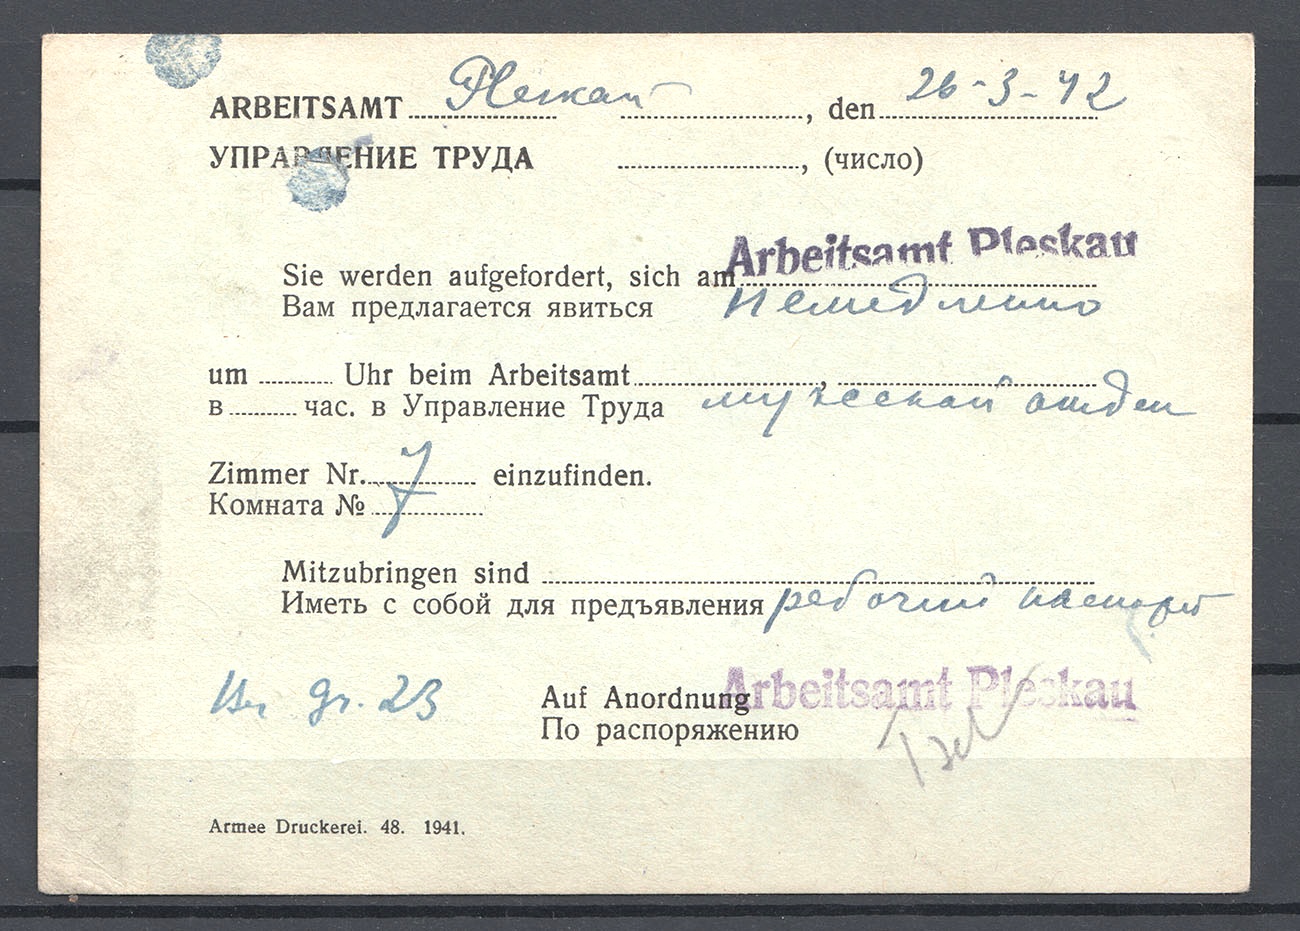 ARBEITSAMT Pleskau, den 26-3-42
УПРАВЛЕНИЕ ТРУДА, (число)
Arbeitsamt Pleskau
Sie werden aufgefordert, sich am
Вам предлагается явиться немедленно
um Uhr beim Arbeitsamt,
в час. в Управление Труда мужской отдел
Zimmer Nr. 7 einzufinden.
Комната №
Mitzubringen sind
Иметь с собой для предъявления рабочий паспорт
gr. 23
Auf Anordnung Arbeitsamt Pleskau
По распоряжению
Armee Druckerei. 48. 1941.